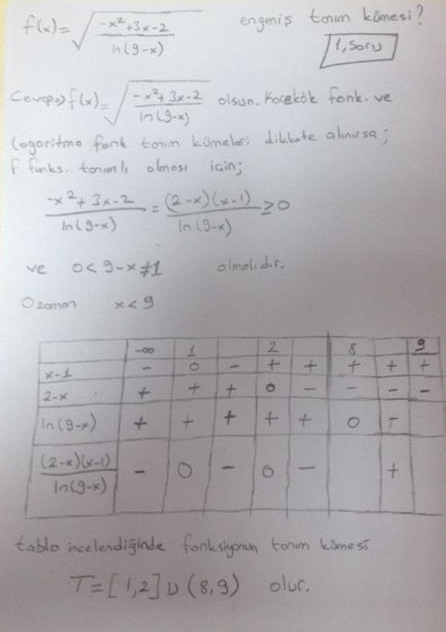 f(x) = √((-x²+3x-2)/(ln(9-x))) en geniş tanım kümesi?
1. Soru
Cevap⇒) f(x) = √((-x²+3x-2)/(ln(9-x))) olsun. Karekök fonk. ve
logaritma fonk. tanım kümeleri dikkate alınırsa;
f fonks. tanımlı olması için;
(-x²+3x-2)/(ln(9-x)) = ((2-x)(x-1))/(ln(9-x)) ≥ 0
ve 0 < 9-x ≠ 1 olmalıdır.
O zaman x < 9
-∞ 1 2 8 9
x-1 - 0 - + + + + +
2-x + + + 0 - - - -
ln(9-x) + + + + + 0 +
((2-x)(x-1))/(ln(9-x)) - 0 - 0 - +
tablo incelendiğinde fonksiyonun tanım kümesi
T = [1,2] ∪ (8,9) olur.